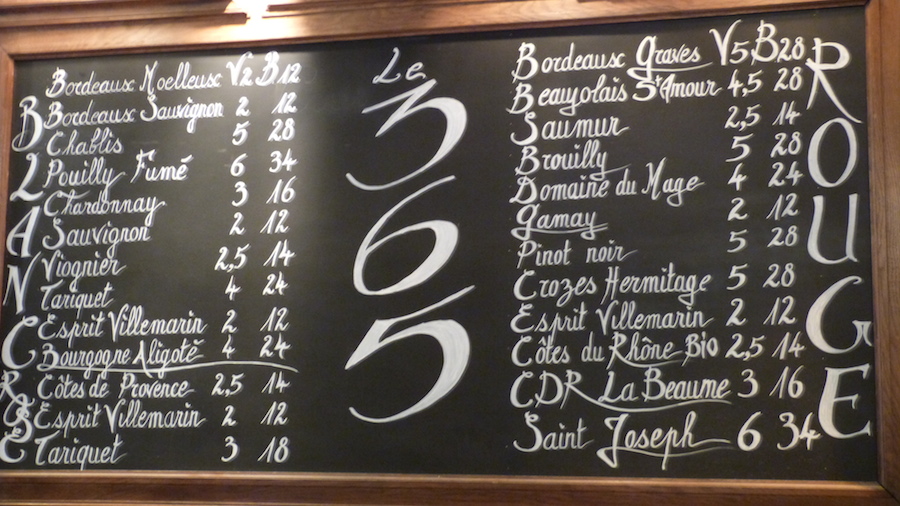 BLANC
Bordeaux Moelleux V2 B12
Bordeaux Sauvignon 2 12
Chablis 5 28
Pouilly Fumé 6 34
Chardonnay 3 16
Sauvignon 2 12
Viognier 2,5 14
Tariquet 4 24
Esprit Villemarin 2 12
Bourgogne Aligoté 4 24
ROSE
Côtes de Provence 2,5 14
Esprit Villemarin 2 12
Tariquet 3 18
Le
365
ROUGE
Bordeaux Graves V5 B28
Beaujolais St Amour 4,5 28
Saumur 2,5 14
Brouilly 5 28
Domaine du Mage 4 24
Gamay 2 12
Pinot noir 5 28
Crozes Hermitage 5 28
Esprit Villemarin 2 12
Côtes du Rhône Bio 2,5 14
CDR La Beaume 3 16
Saint Joseph 6 34